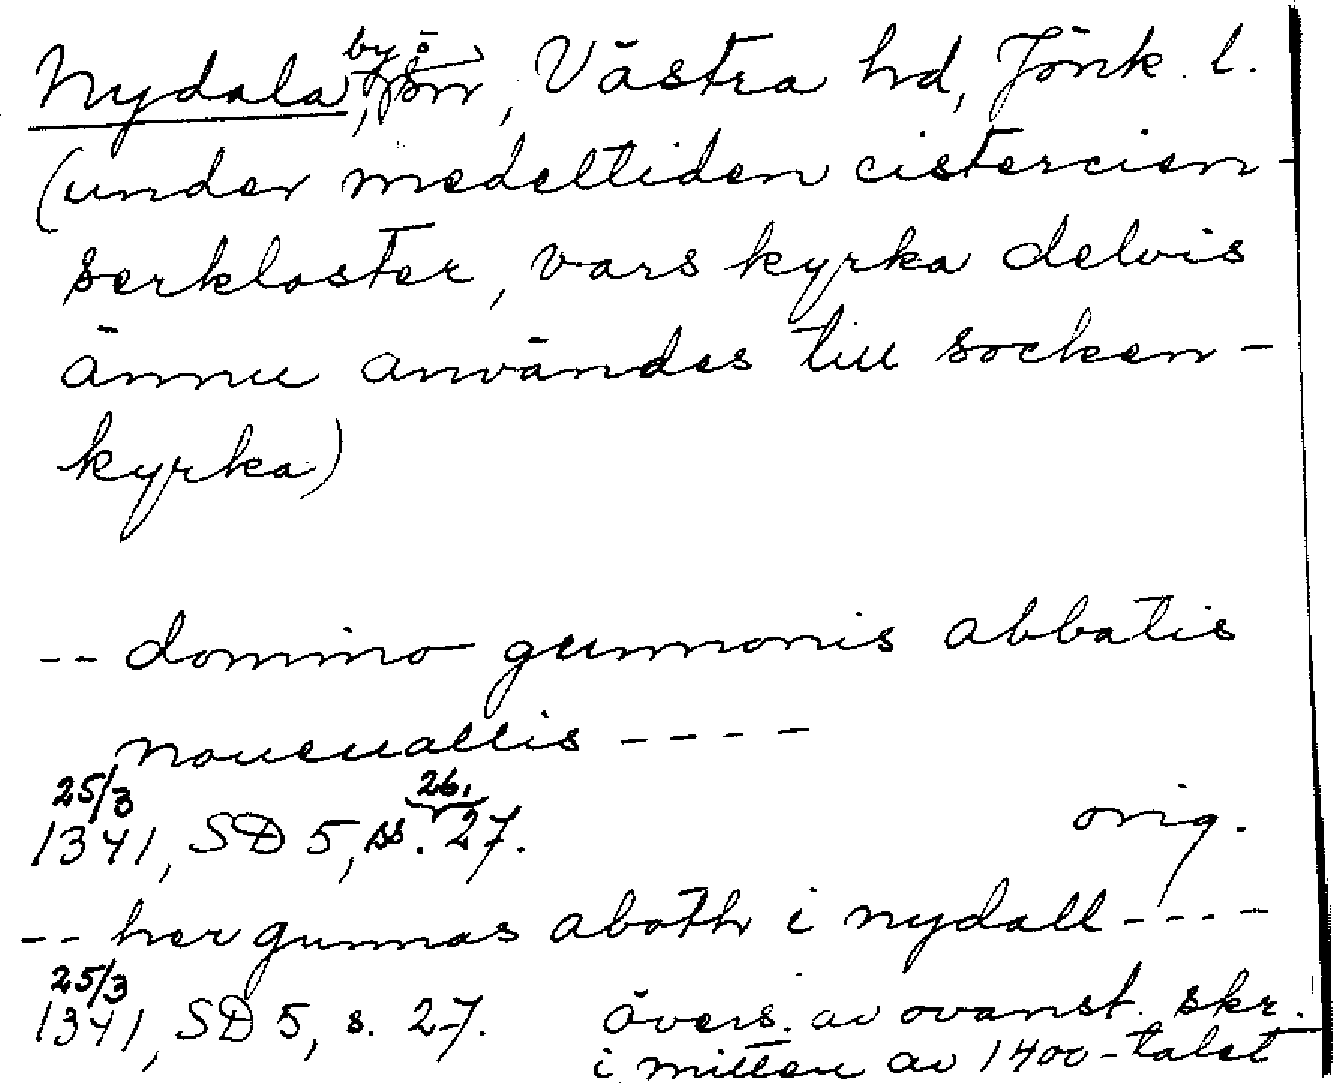 Nydala, by, Västra hd, Jönk. l.
(under medeltiden cistercien-
serkloster, vars kyrka delvis
ännu användes till socken-
kyrka)
-- domino gunnonis abbatis
noueuallis ----
25/3
1341, SD 5, s. 26, 27. orig.
-- her gunnas aboth i nydall ----
25/3
1341, SD 5, s. 27. övers. av ovanst. skr.
i mitten av 1400-talet